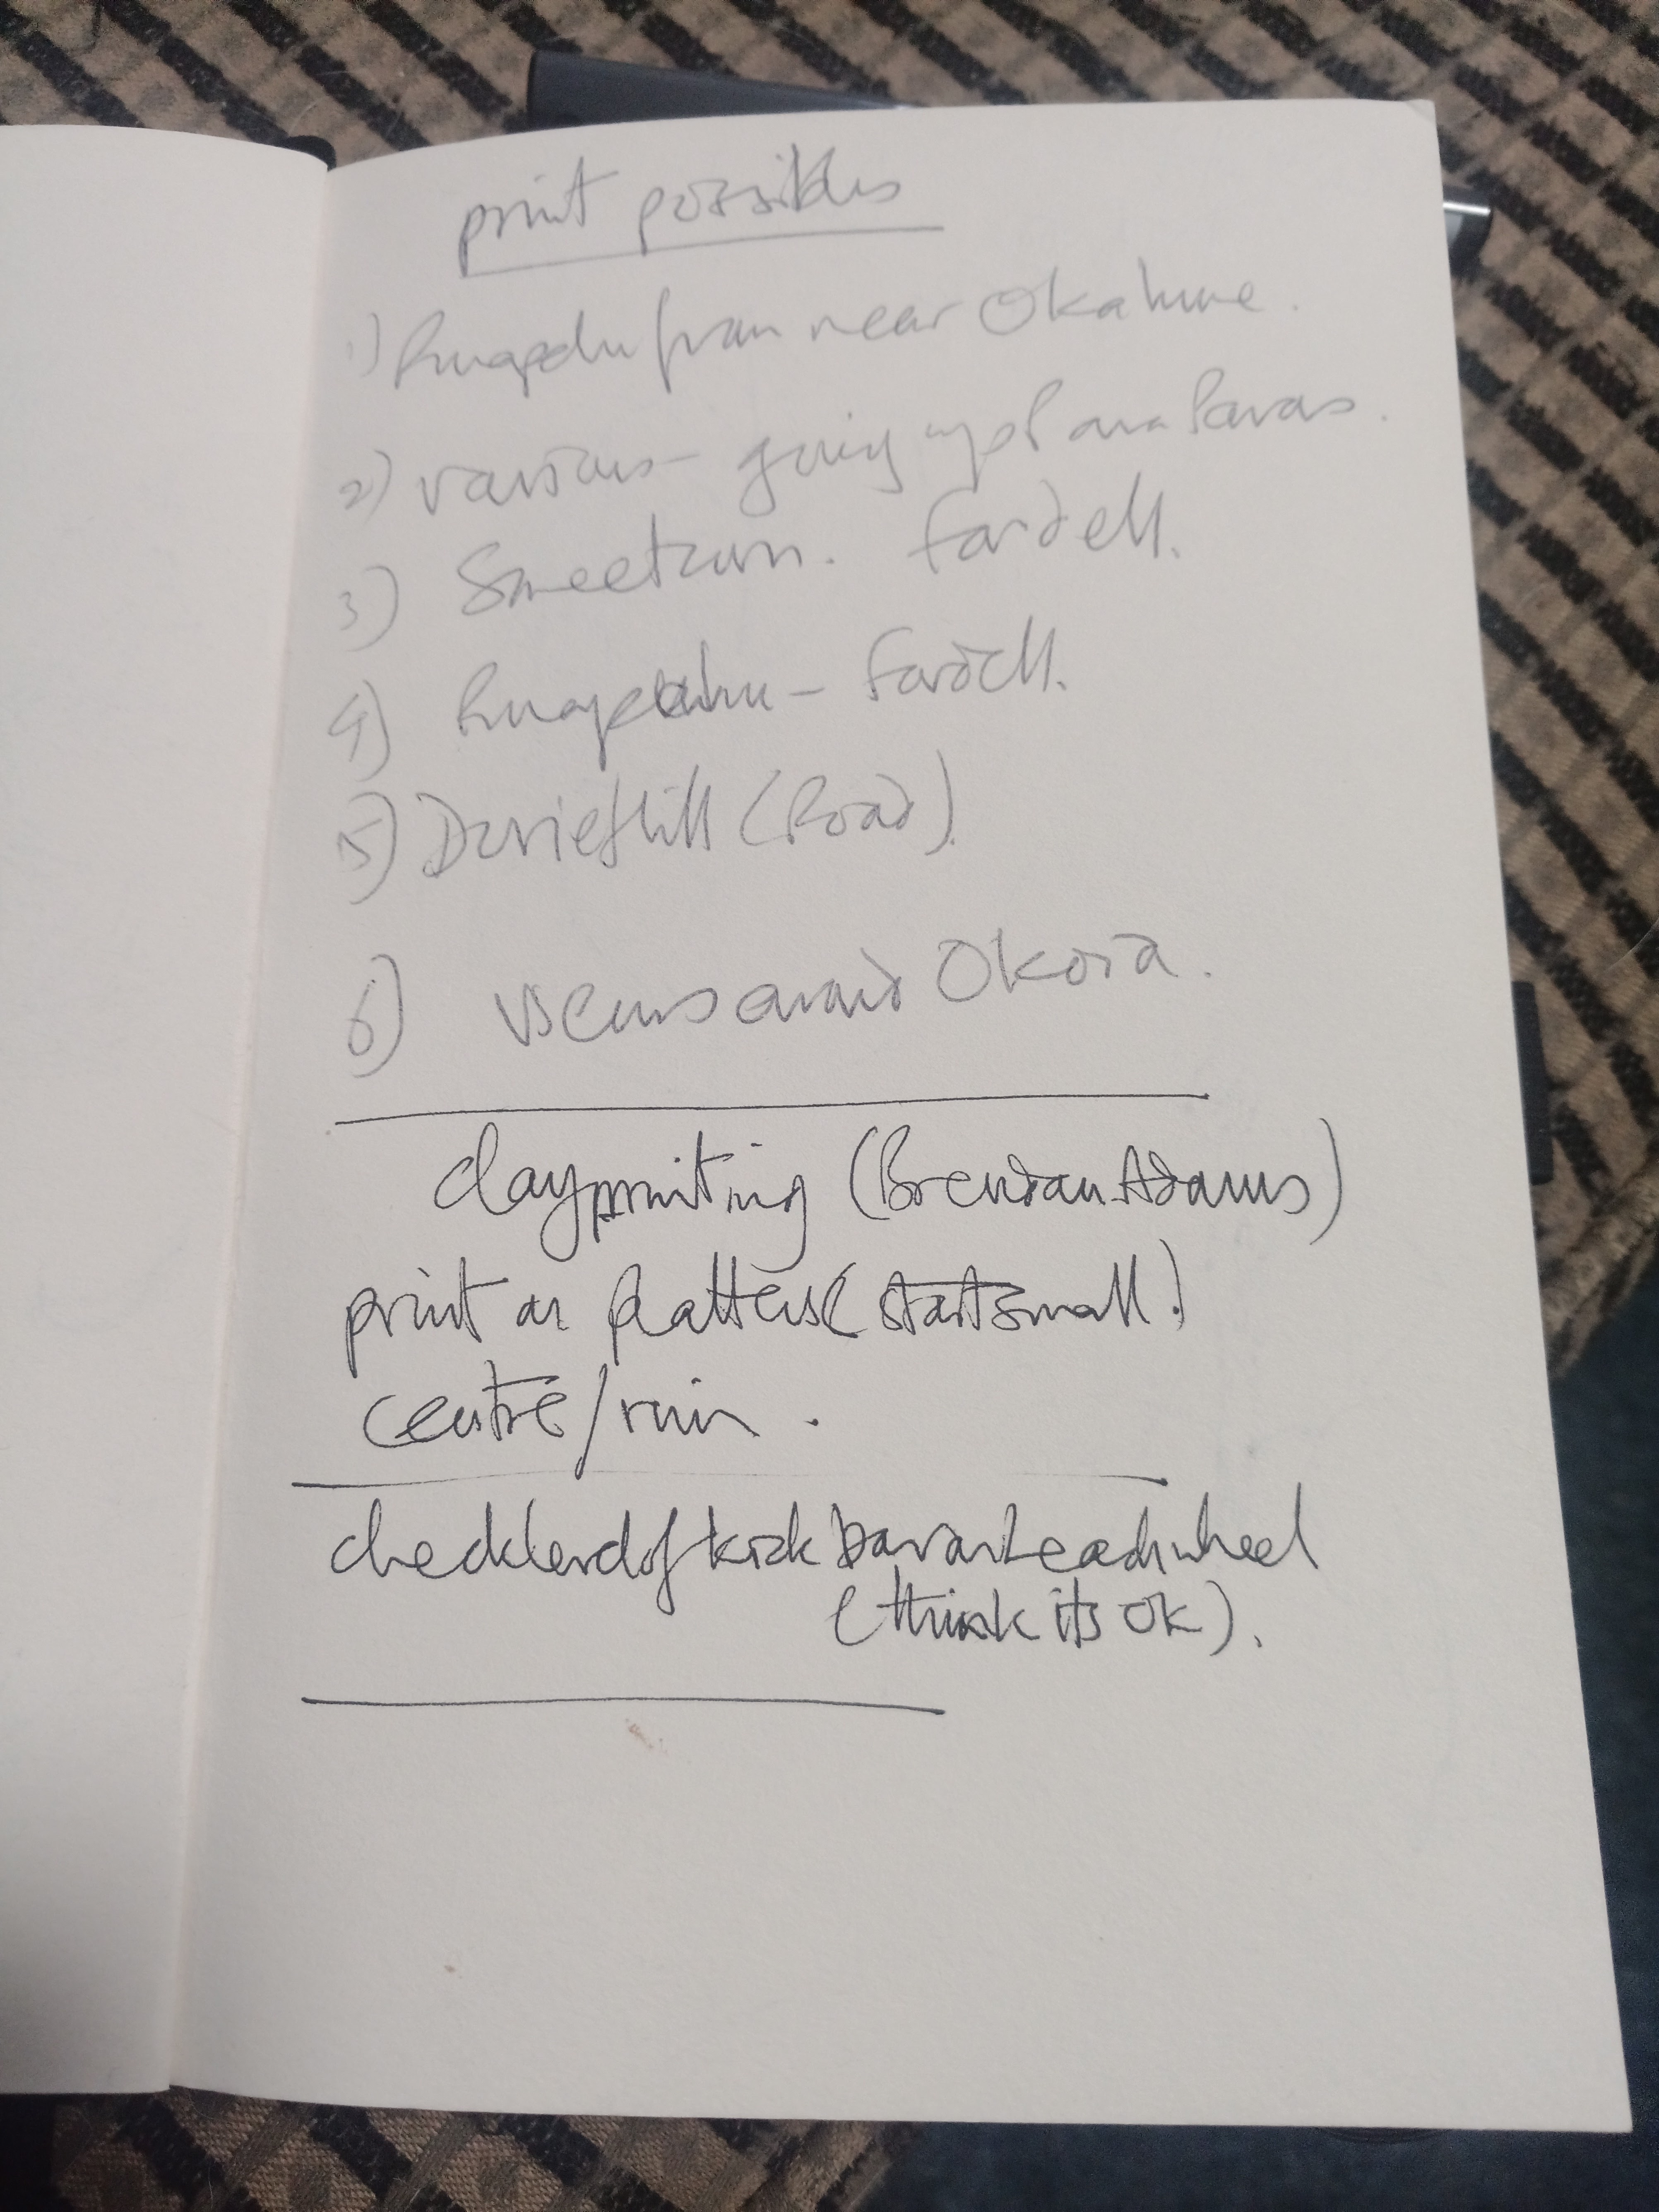 print possibles
1) Ruapehu from near Okahune.
2) various - going up Paraparas.
3) Smeetown. Fardell.
4) Ruapehu - Fardell.
5) Durie Hill (Road).
6) views around Okoia.
clay printing (Brendan Adams)
print on platters (start small!)
centre / rim .
check level of kick bar on Leach wheel
(think its OK).